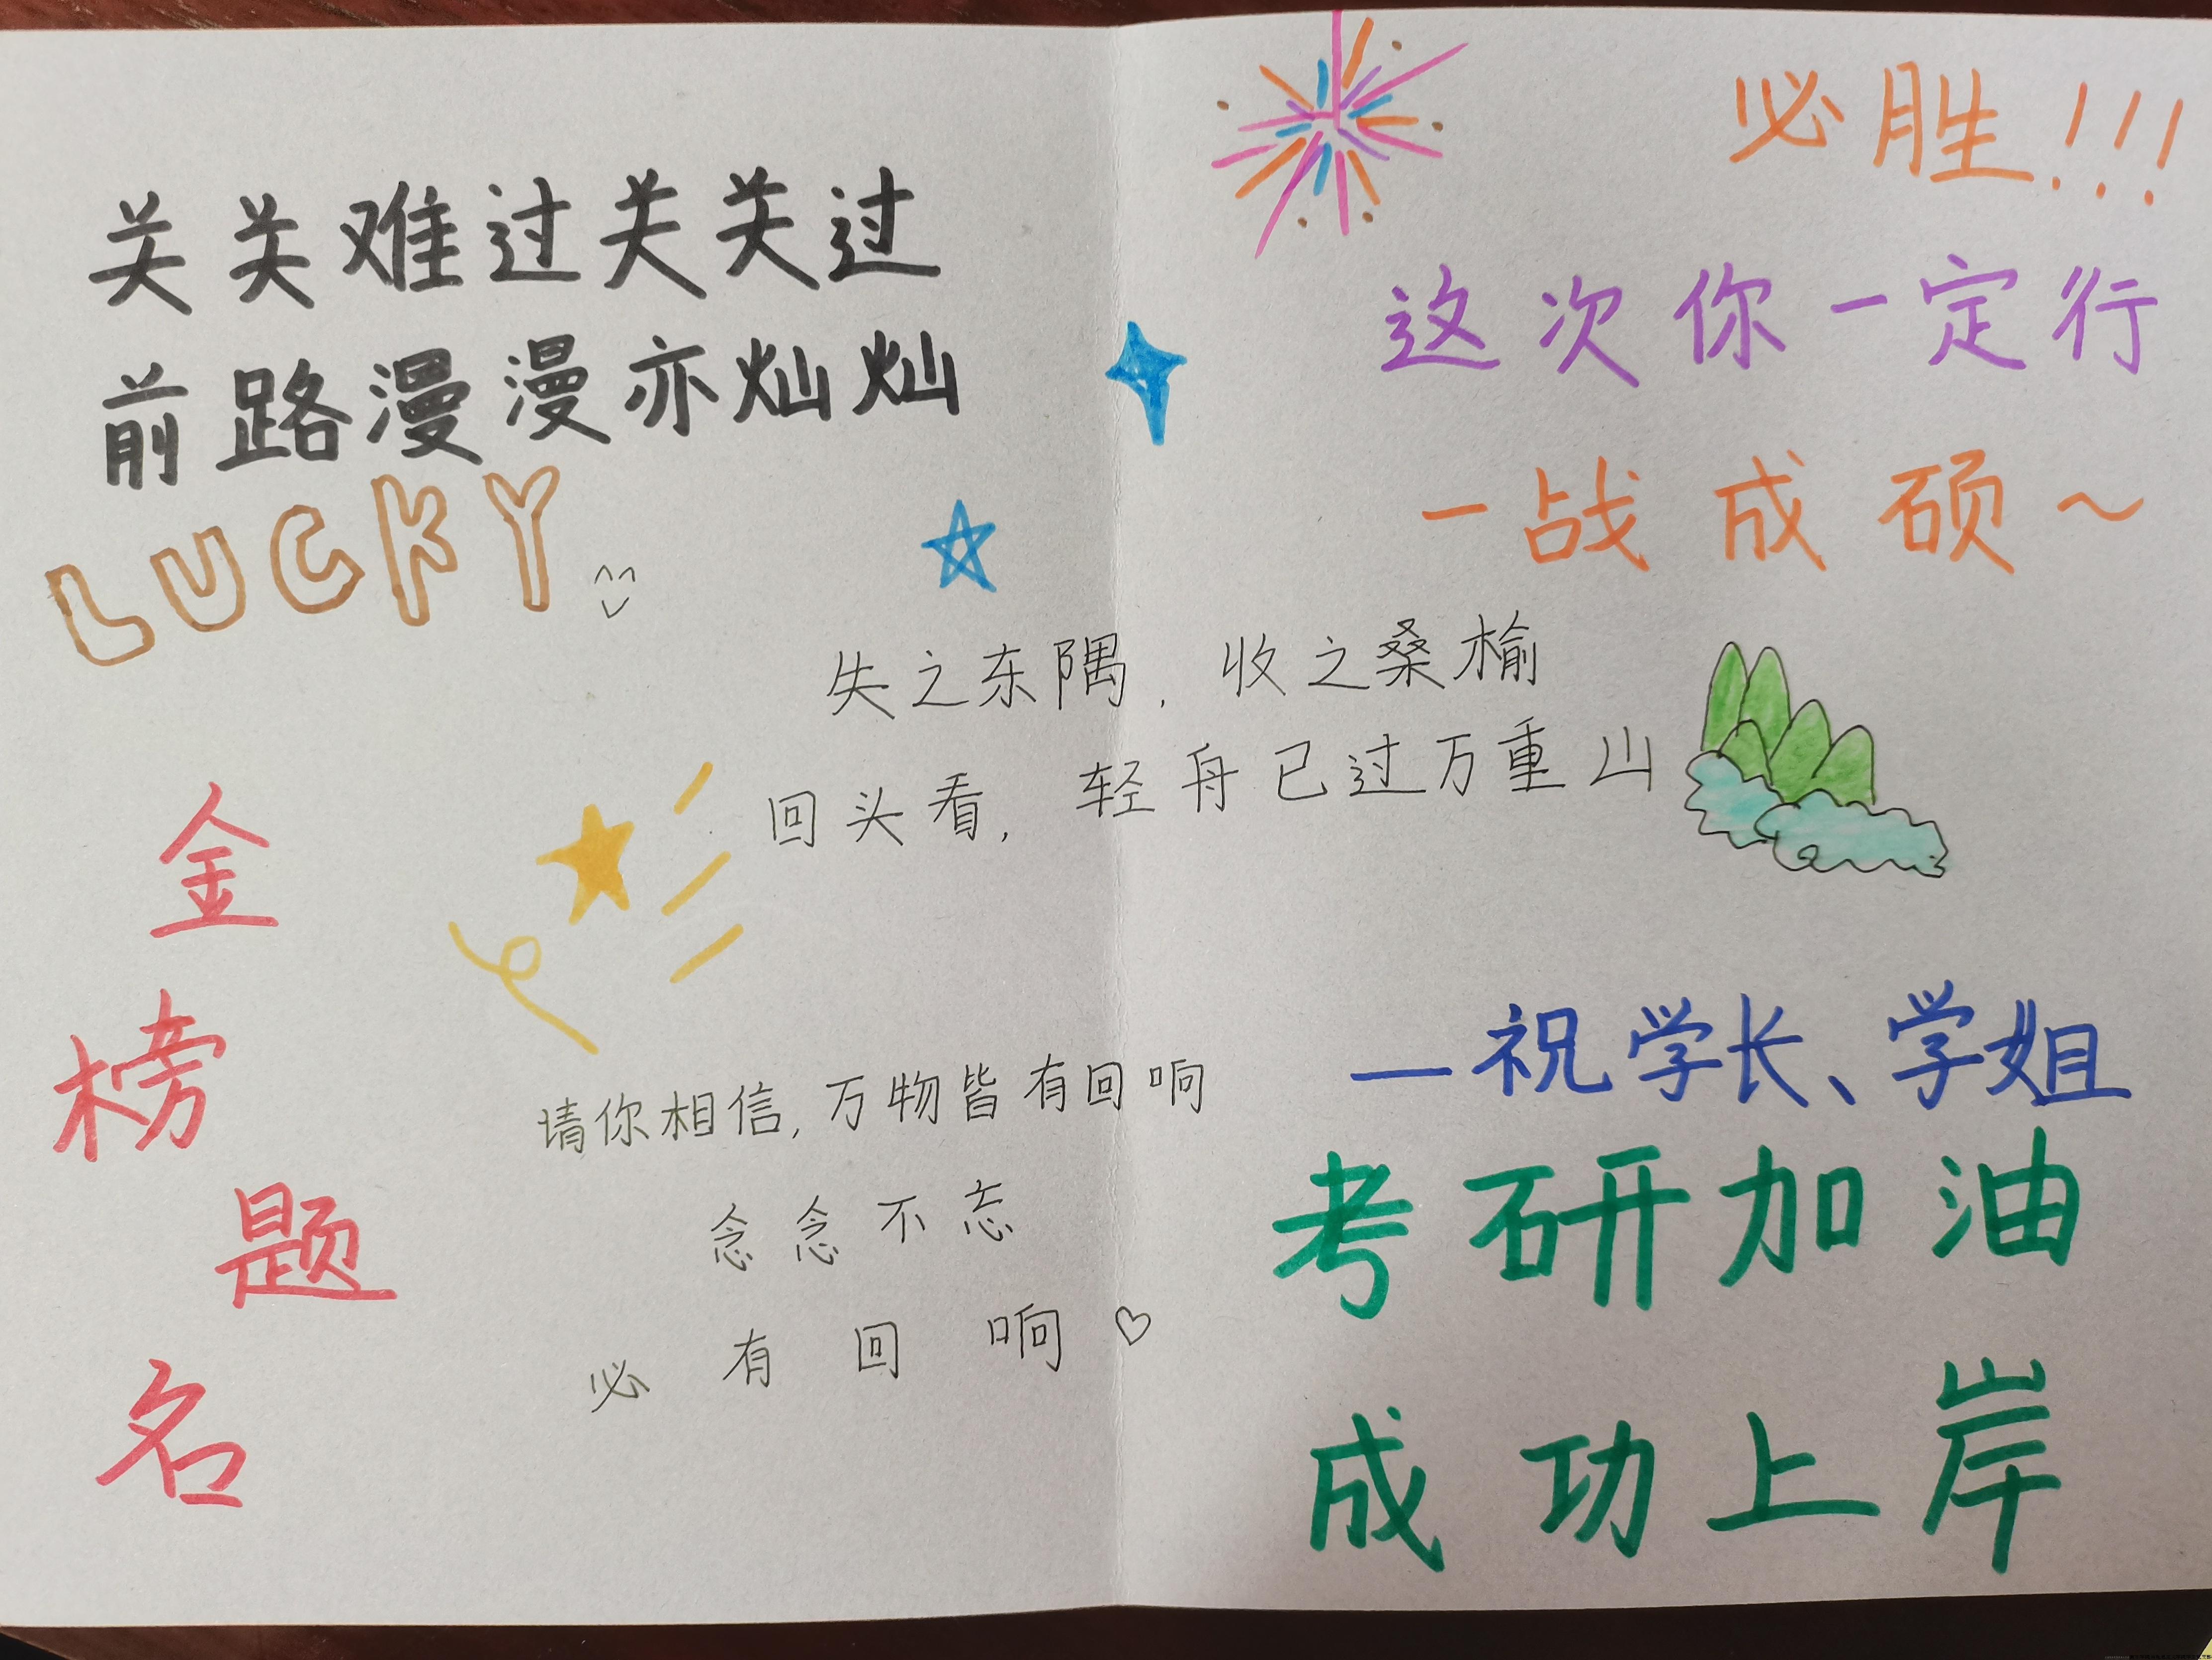 关关难过关关过
前路漫漫亦灿灿
LUCKY
必胜!!!
这次你一定行
一战成硕~
失之东隅,收之桑榆
回头看,轻舟已过万重山
金
榜
题
名
请你相信,万物皆有回响
念念不忘
必有回响♡
—祝学长、学姐
考研加油
成功上岸